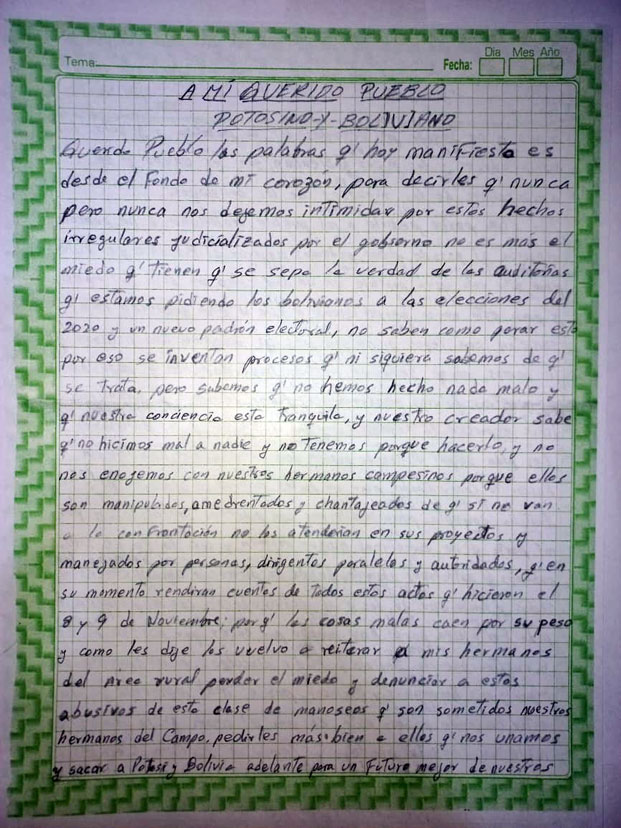 Tema:
Fecha:
Dia Mes Año
A MÍ QUERIDO PUEBLO
POTOSINO-Y-BOLIVIANO
Querdo Pueblo las palabras q' hoy maniFiesto es
desde el Fondo de mi corozón, para decirles q' nunca
pero nunca nos dejemos intimidar por estos hechos
irregulares judicializados por el gobierno no es más el
miedo q' tienen q' se sepa la verdad de las auditorias
q' estamos pidiendo los bolivianos a las elecciones del
2020 y un nuevo padrón electoral, no saben como parar esto
por eso se inventan procesos q' ni siquiera sabemos de q'
se trata, pero sabemos q' no hemos hecho nada malo y
q' nuestra conciencia esta tranquila, y nuestro creador sabe
q' no hicimos mal a nadie y no tenemos porque hacerlo, y no
nos enojemos con nuestros hermanos campesinos porque ellos
son manipulados, amedrentados y chantajeados de q' si no van
a la conFrontación no los atenderian en sus proyectos y
manejados por personas, dirigentes paralelos y autoridades, q' en
su momento rendiran cuentas de todos estos actos q' hicieron el
8 y 9 de Noviembre; porq' las cosas malas caen por su peso
y como les dije les vuelvo a reiterar a mis hermanos
del Area rural perder el miedo y denunciar a estos
abusivos de esta clase de manoseos q' son sometidos nuestros
hermanos del Campo, pedirles más bien a ellos q' nos unamos
y sacar a Potosi y Bolivia adelante para un Futuro mejor de nuestros